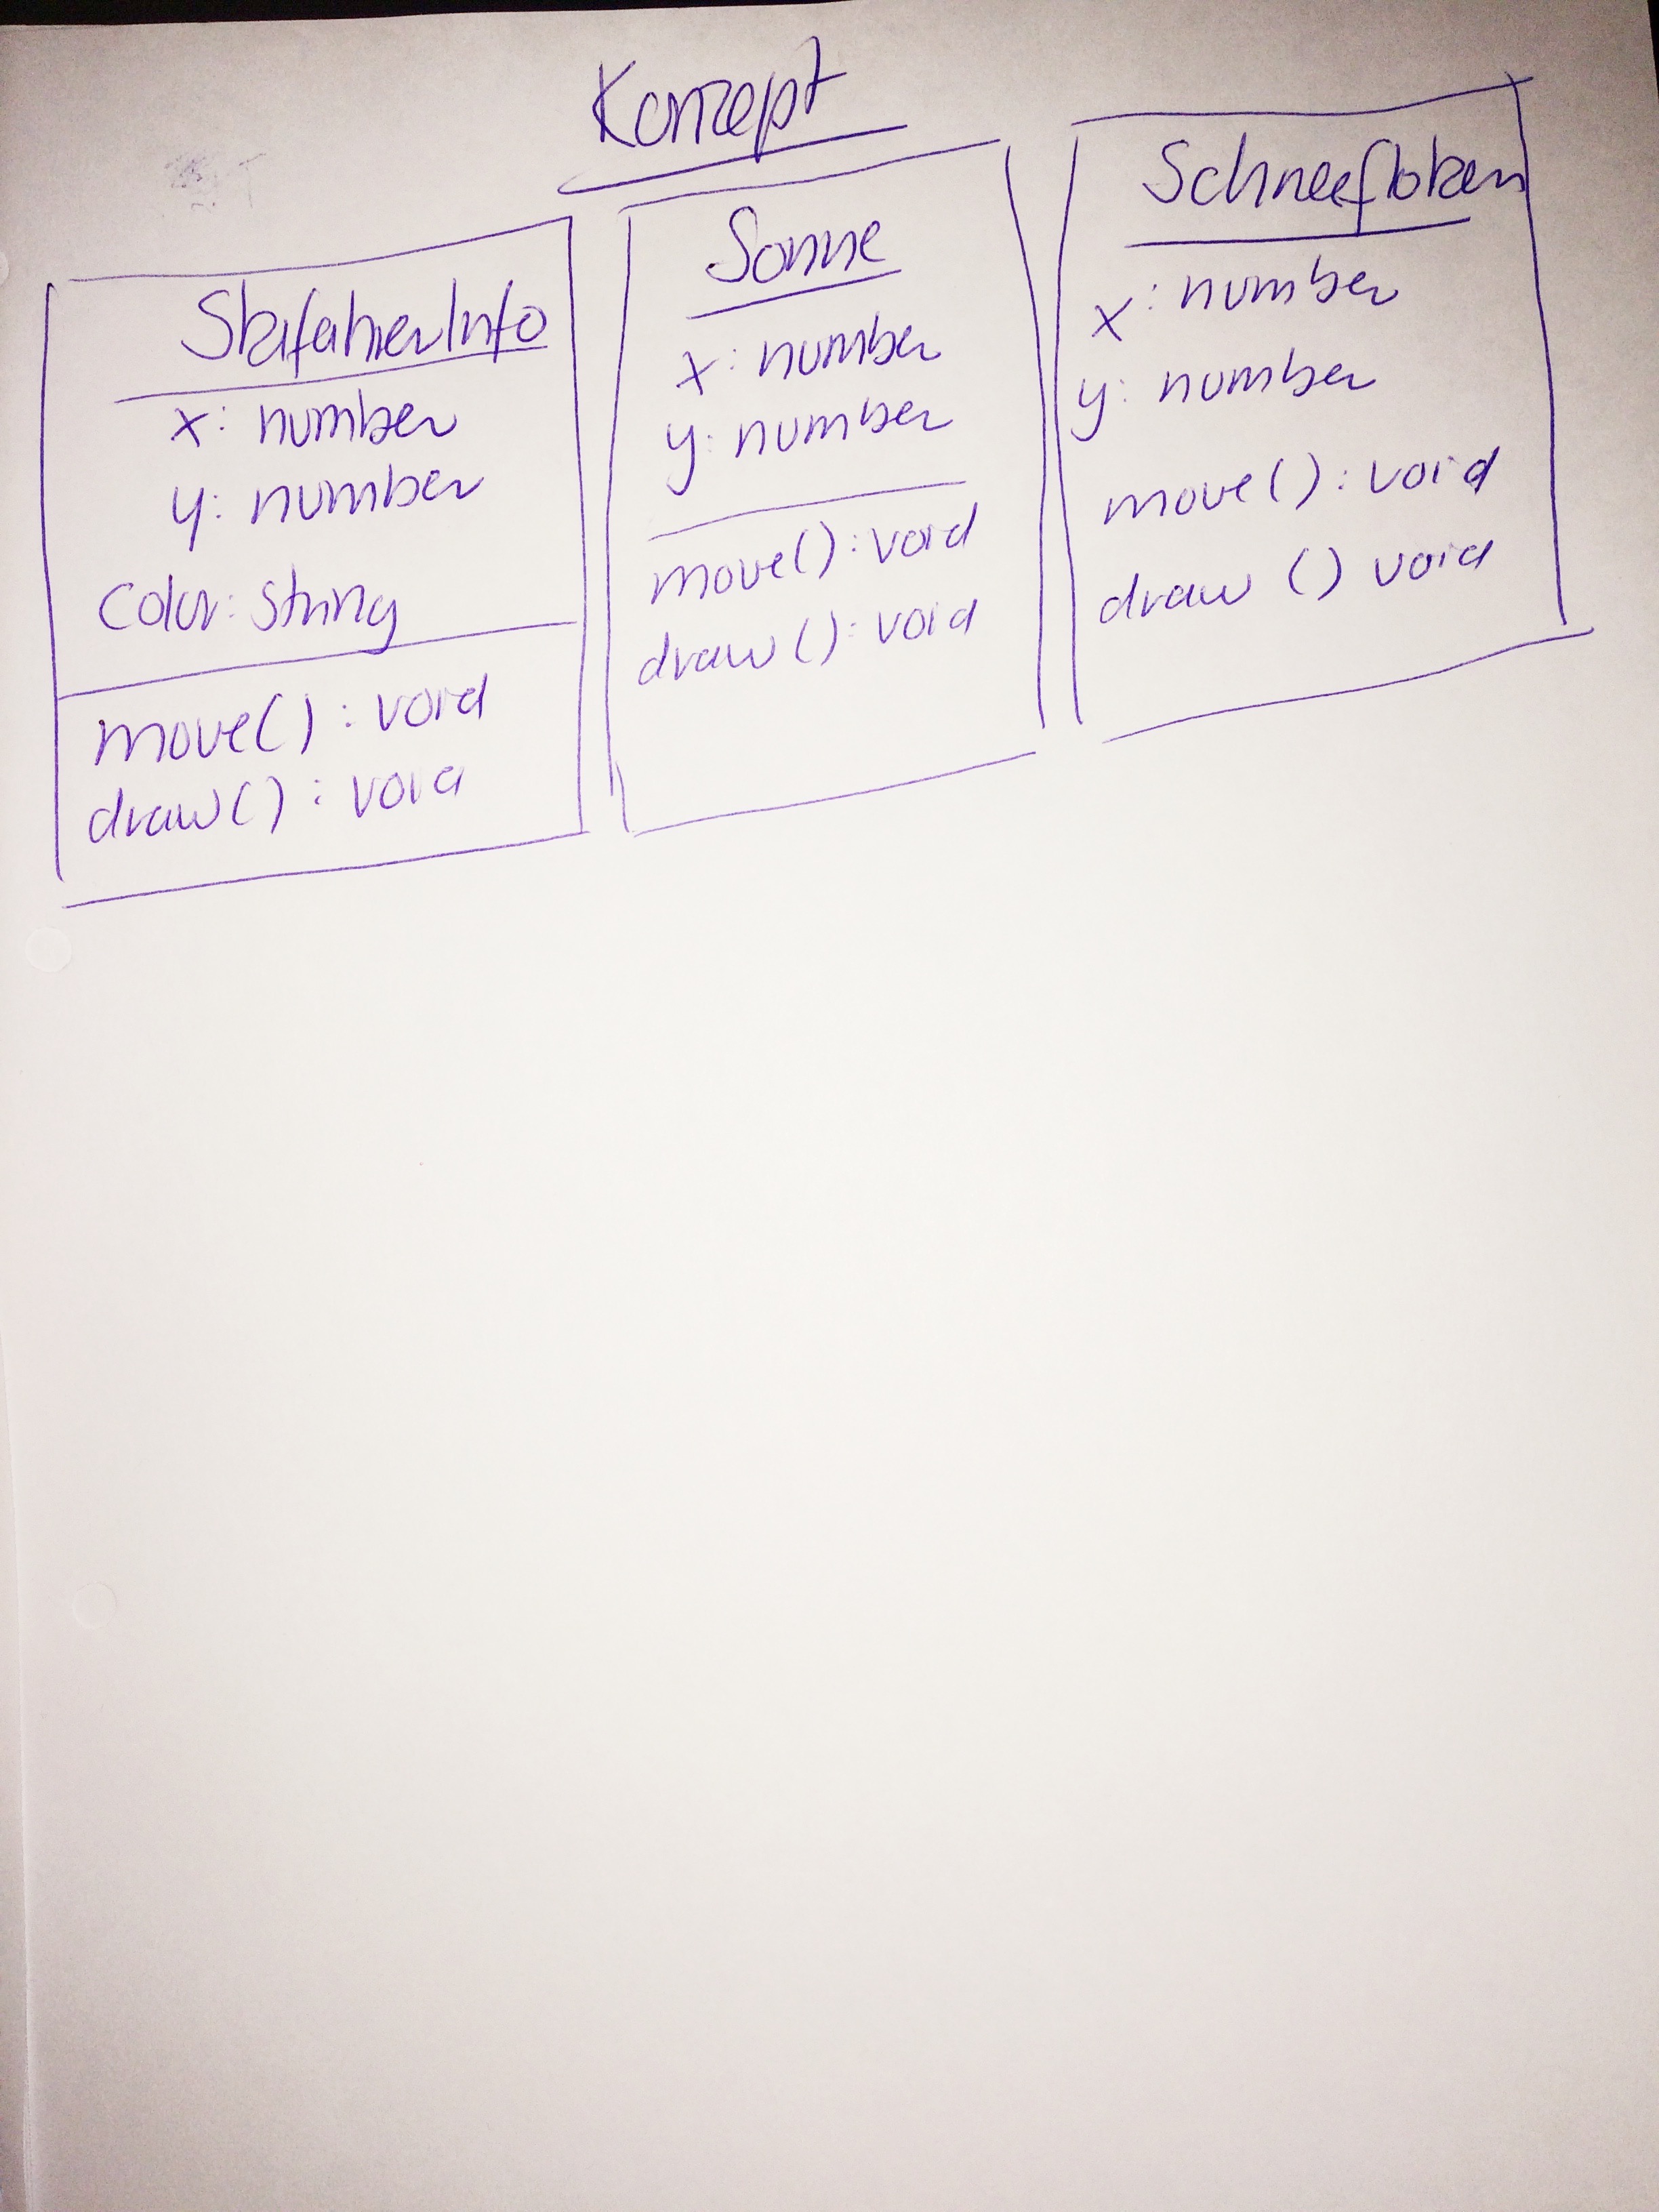 Konzept
SkifahrerInfo
x: number
y: number
Color: string
move() : void
draw() : void
Sonne
x: number
y: number
move() : void
draw() : void
Schneefloken
x: number
y: number
move() : void
draw () void